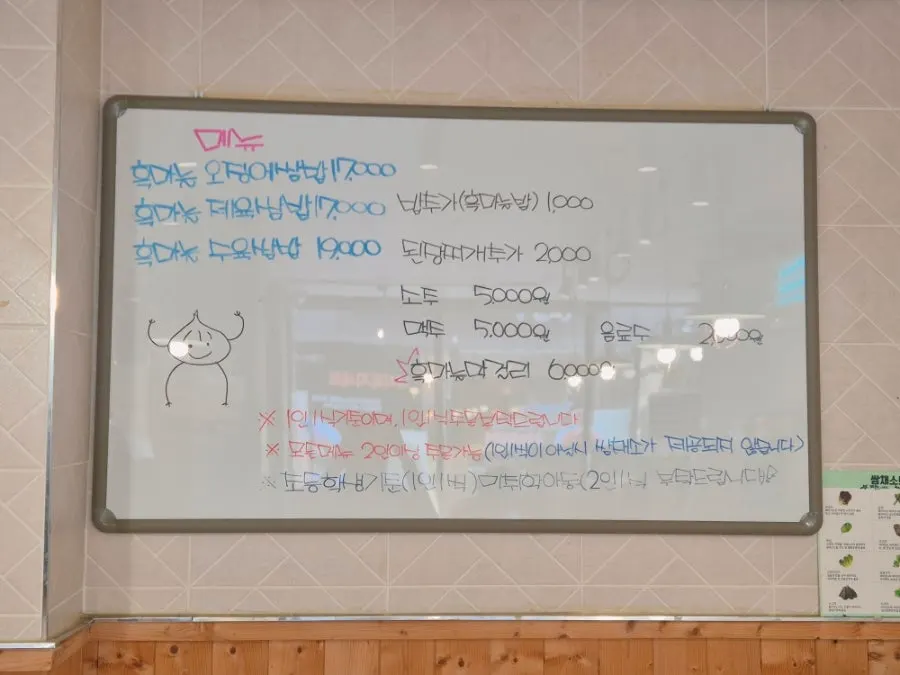 메뉴
흑마늘 오징어쌈밥 17,000
흑마늘 제육쌈밥 17,000
흑마늘 수육쌈밥 19,000
밥추가(흑마늘밥) 1,000
된장찌개추가 2,000
소주 5,000원
맥주 5,000원 음료수 2,000원
흑마늘막걸리 6000
※ 1인1식기준이며, 1인1식주문부탁드립니다
※ 모든메뉴 2인이상 주문가능(1인1식이 아닐시 쌈채소가 제공되지 않습니다)
※ 초등학생기준(1인1식)미취학아동(2인1식 부탁드립니다)
쌈채소